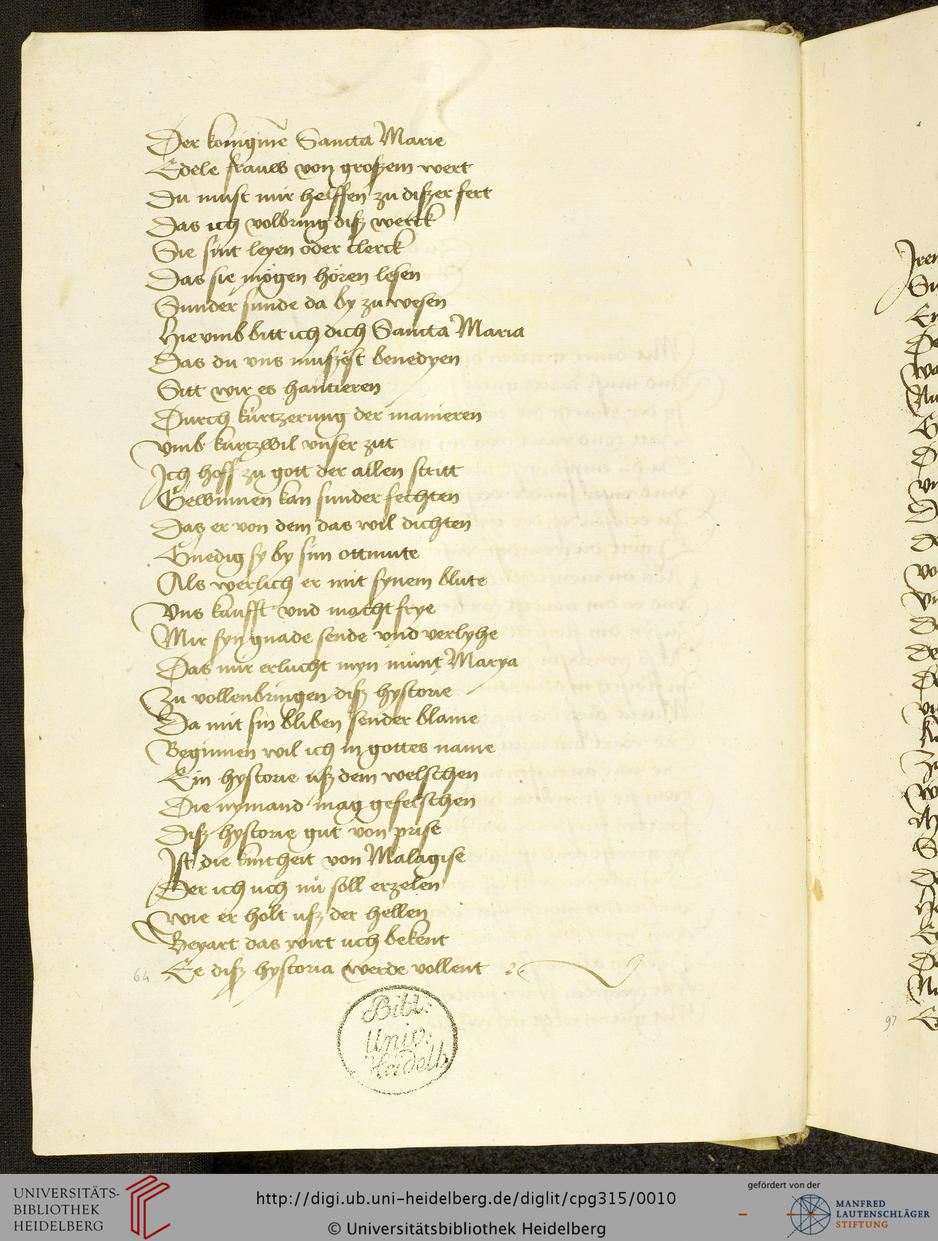 Der konigine Sancta Marie
Edele frauw von großem wert
Du must mir helffen zu dißer fert
Das ich volbring diß werck
Sie sint leyen oder clerck
Das sie mögen hören lesen
Sunder sunde da by zu wesen
Hie vmb bitt ich dich Sancta Maria
Das du vns mußest benedyen
Sitt wir es hantieren
Durch kurtzerung der manieren
vmb kurtzwil vnser zitt
Ich hoff zu gott der allen stritt
Gewinnen kan sunder fechten
Das er von dem das wil dichten
Gnedig sy by sim ottmute
Als werlich er mit synem blute
Vns kaufft vnd macht frye
Mir syn gnade sende vnd verlyhe
Das mir erlucht myn munt Marya
Zu vollenbringen diß hystorie
Da mit sin bliben sender blame
Beginnen wil ich in gottes name
Ein hystorie uß dem welschen
Die nymand mag gefelschen
Diß hystorie gut von prise
Ist die kintheit von Malagise
Der ich uch nü soll erzelen
wie er holt uß der hellen
Beyart das wirt uch bekent
64 Ee diß hystoria werde vollent
Bibl:
Univ:
Heidelb
97
UNIVERSITÄTS-
BIBLIOTHEK
HEIDELBERG
http://digi.ub.uni-heidelberg.de/diglit/cpg315/0010
© Universitätsbibliothek Heidelberg
gefördert von der
MANFRED
LAUTENSCHLÄGER
STIFTUNG